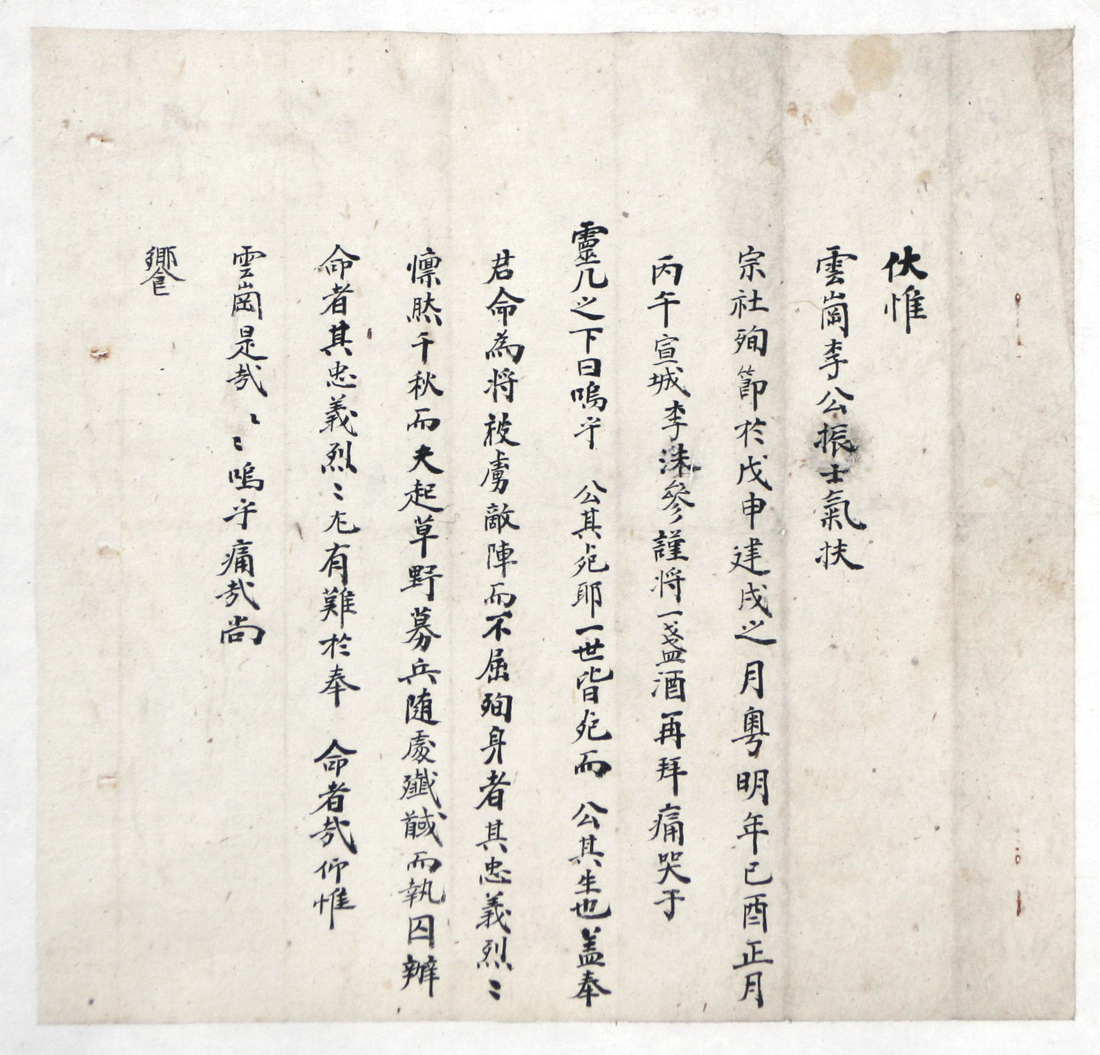 伏惟
雲崗李公振士氣扶
宗社殉節於戊申建戌之月粵明年己酉正月
丙午宣城李洙參謹將一盞酒再拜痛哭于
靈几之下曰嗚乎 公其死耶一世皆死而 公其生也盖奉
君命為将被虜敵陣而不屈殉身者其忠義烈〻
懍然千秋而夫起草野募兵随處殲馘而執囚辦
命者其忠義烈〻尤有難於奉 命者哉仰惟
雲崗是哉〻〻嗚乎痛哉尚
饗